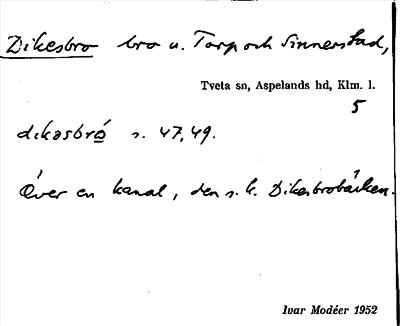 Dikesbro bro u. Torp och Sinnerstad,
Tveta sn, Aspelands hd, Klm. l.
5
dikəsbrò s. 47, 49.
Över en kanal, den s. k. Dikesbrobäcken.
Ivar Modéer 1952